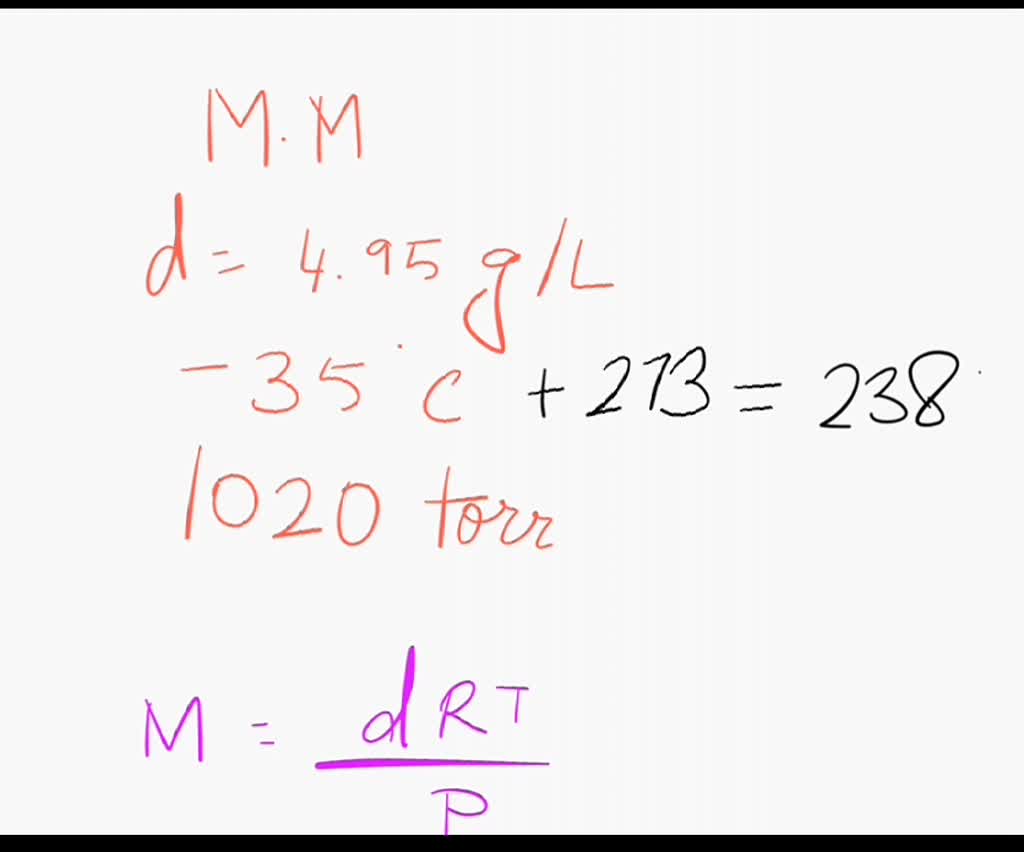 M.M
d = 4.95 g/L
-35 °c + 273 = 238
1020 torr
M = dRT
P